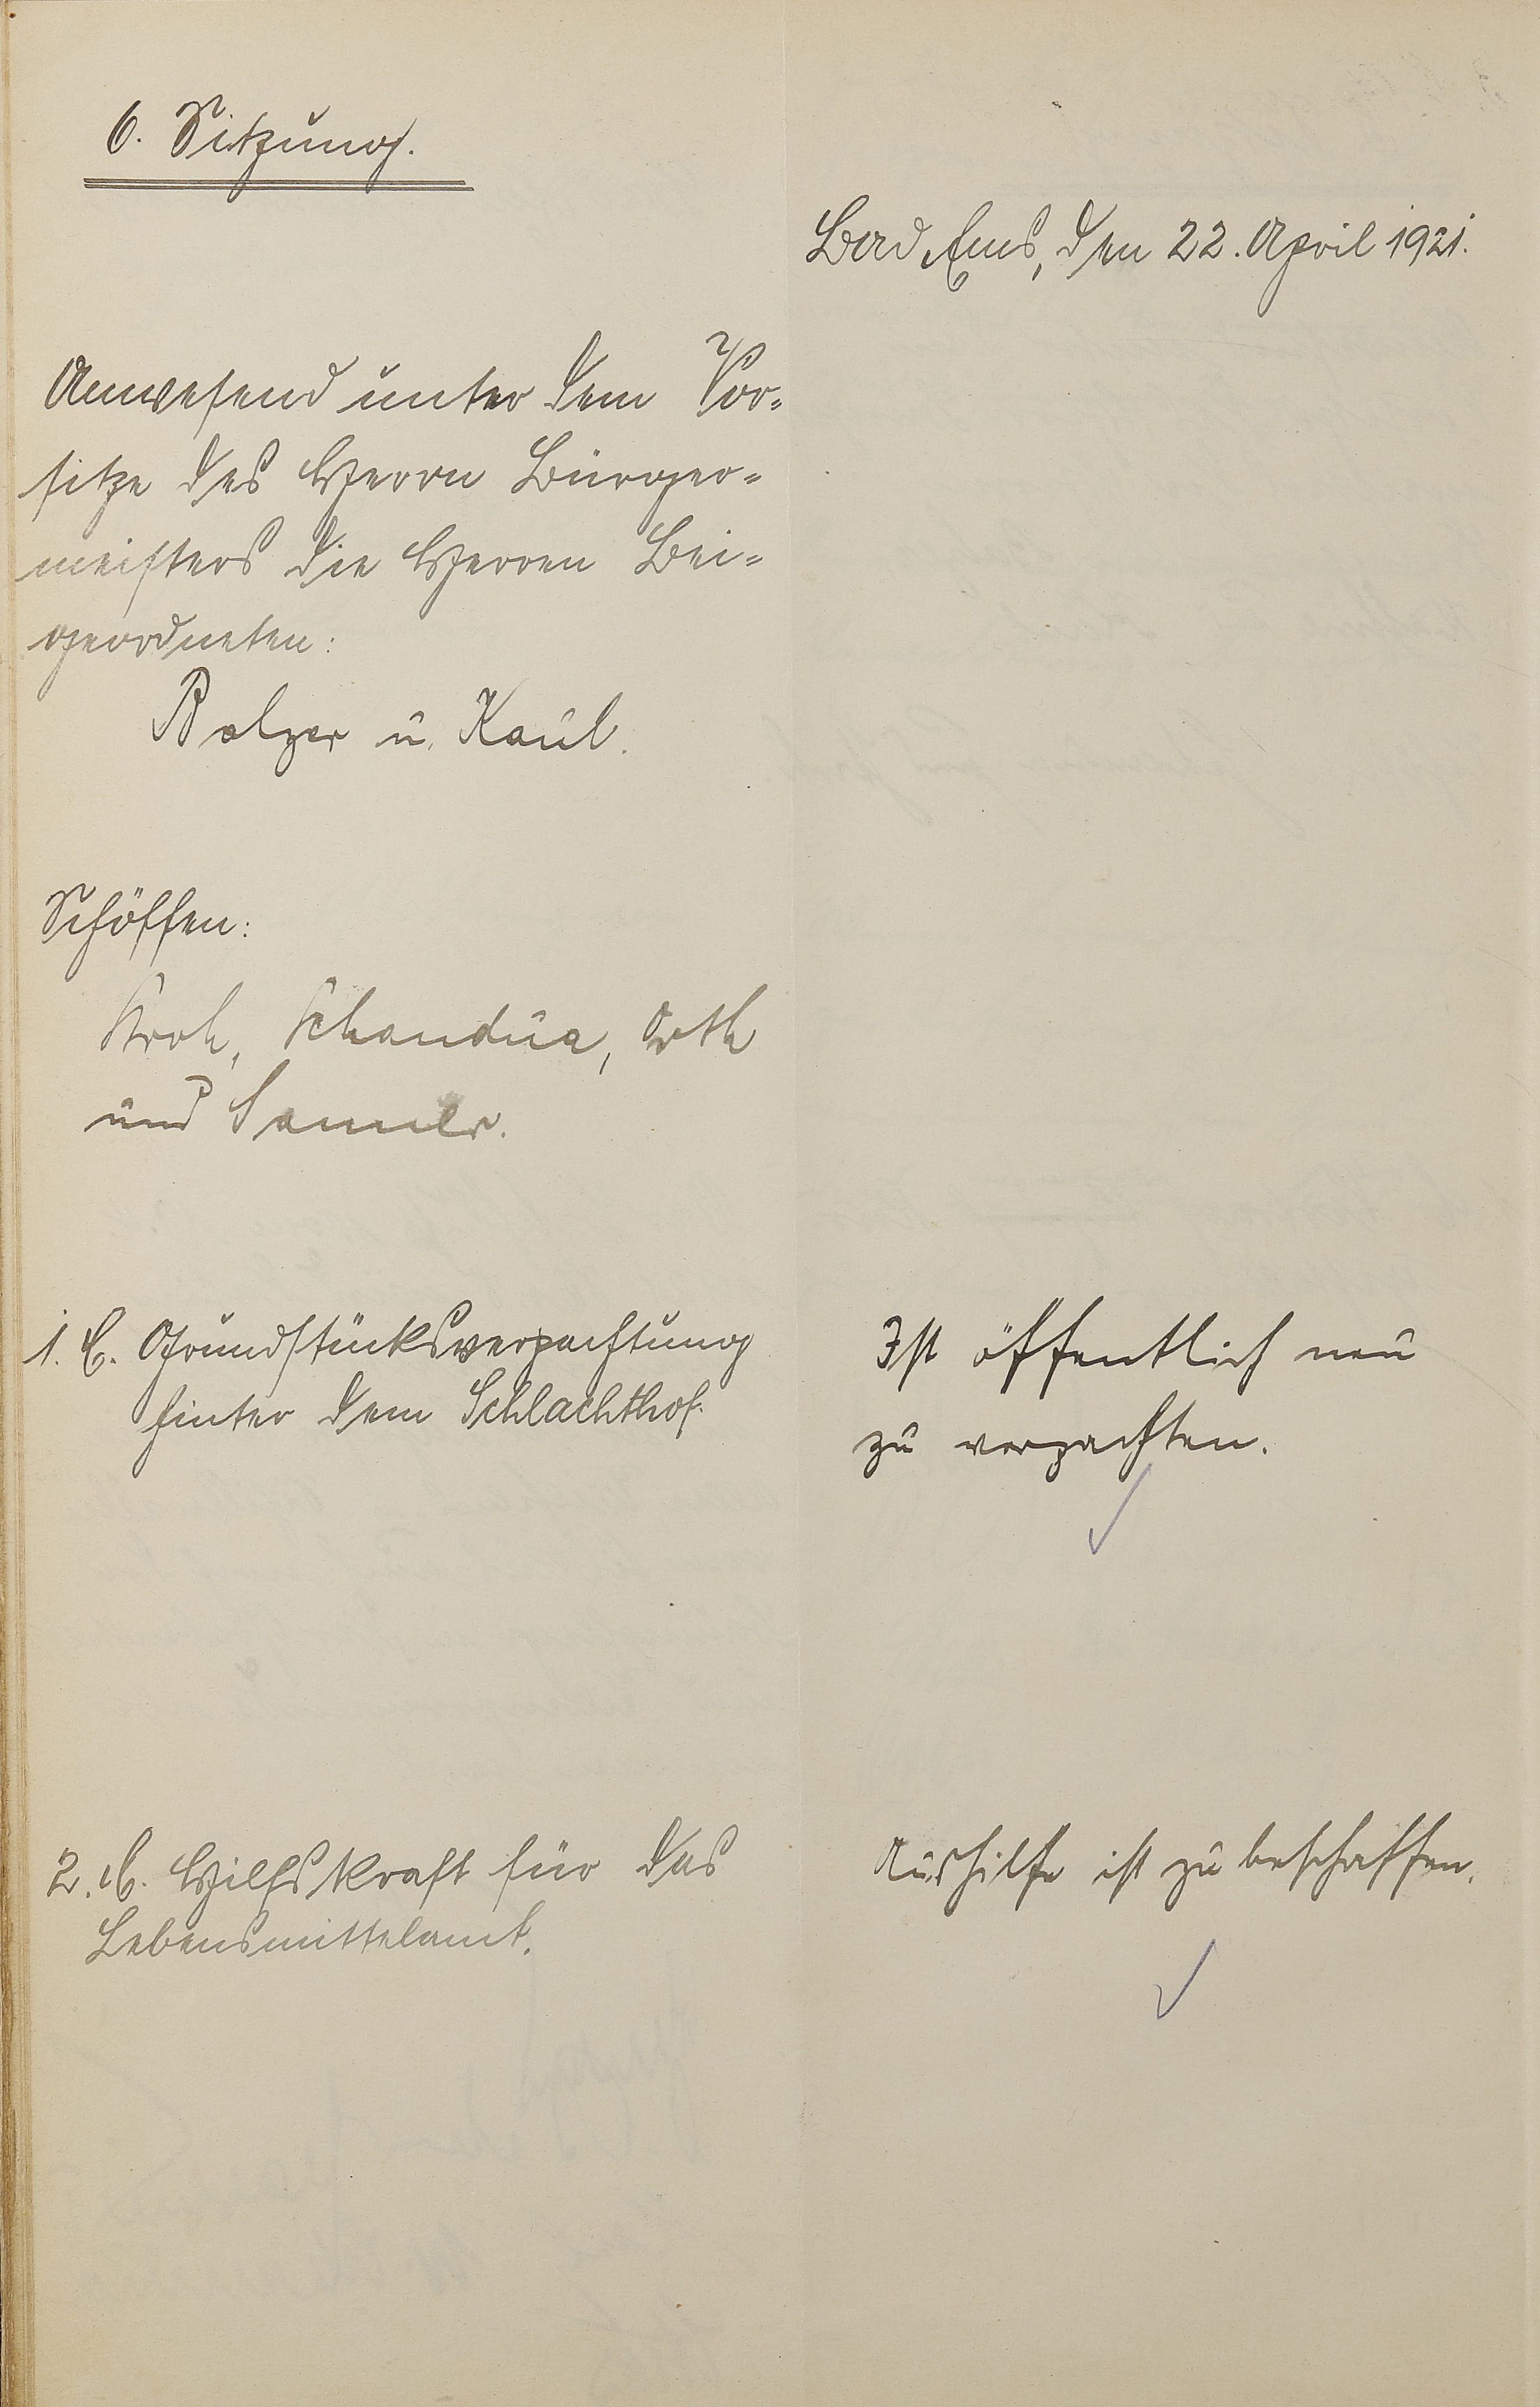 6. Sitzung.
Bad Ems, den 22. April 1921.
Anwesend unter dem Vor-
sitze des Herrn Bürger-
meisters die Herren Bei-
geordneten:
Balzer u. Kaul.
Schöffen:
Kroh, Schandua, Orth
und Sommer.
1. B. Grundstücksverpachtung
hinter dem Schlachthof.
Ist öffentlich neu
zu verpachten.
2. B. Hilfskraft für das
Lebensmittelamt.
Aushilfe ist zu beschaffen.